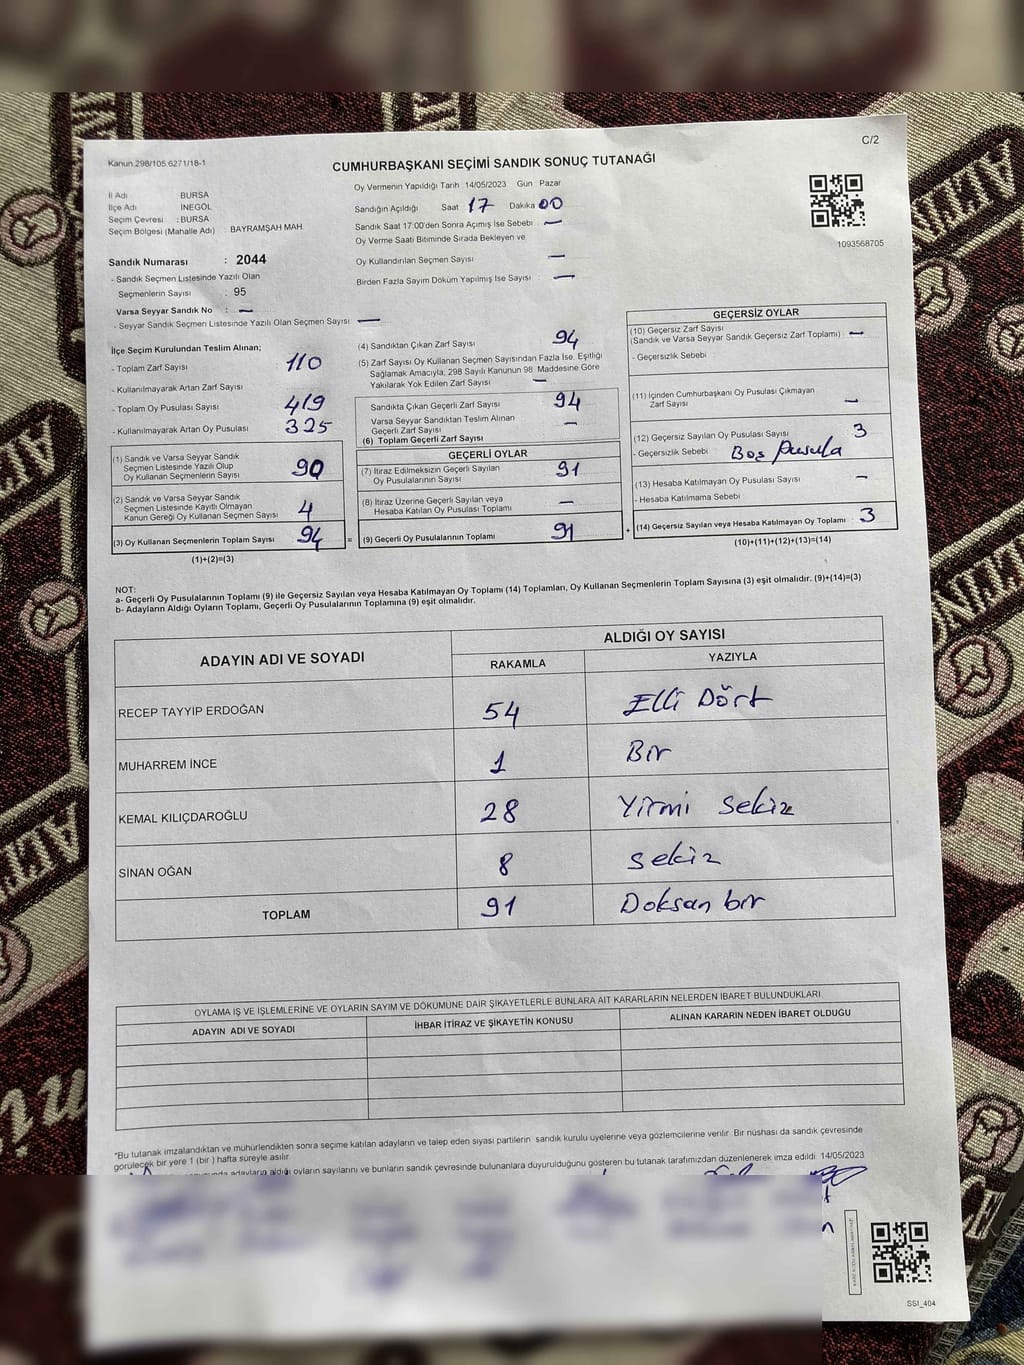 C/2
Kanun.298/105.6271/18-1
CUMHURBAŞKANI SEÇİMİ SANDIK SONUÇ TUTANAĞI
İl Adı BURSA
İlçe Adı İNEGÖL
Seçim Çevresi : BURSA
Seçim Bölgesi (Mahalle Adı) : BAYRAMŞAH MAH.
Oy Vermenin Yapıldığı Tarih 14/05/2023 Gün Pazar
Sandığın Açıldığı Saat 17 Dakika 00
Sandık Saat 17:00'den Sonra Açımış İse Sebebi —
Oy Verme Saati Bitiminde Sırada Bekleyen ve
Oy Kullandırılan Seçmen Sayısı —
Birden Fazla Sayım Döküm Yapılmış İse Sayısı —
1093568705
Sandık Numarası : 2044
- Sandık Seçmen Listesinde Yazılı Olan
Seçmenlerin Sayısı : 95
Varsa Seyyar Sandık No : —
- Seyyar Sandık Seçmen Listesinde Yazılı Olan Seçmen Sayısı —
İlçe Seçim Kurulundan Teslim Alınan;
- Toplam Zarf Sayısı 110
- Kullanılmayarak Artan Zarf Sayısı
- Toplam Oy Pusulası Sayısı 419
- Kullanılmayarak Artan Oy Pusulası 325
(1) Sandık ve Varsa Seyyar Sandık
Seçmen Listesinde Yazılı Olup
Oy Kullanan Seçmenlerin Sayısı 90
(2) Sandık ve Varsa Seyyar Sandık
Seçmen Listesinde Kayıtlı Olmayan
Kanun Gereği Oy Kullanan Seçmen Sayısı 4
(3) Oy Kullanan Seçmenlerin Toplam Sayısı 94
(1)+(2)=(3)
(4) Sandıktan Çıkan Zarf Sayısı 94
(5) Zarf Sayısı Oy Kullanan Seçmen Sayısından Fazla İse, Eşitliği
Sağlamak Amacıyla; 298 Sayılı Kanunun 98. Maddesine Göre
Yakılarak Yok Edilen Zarf Sayısı —
Sandıkta Çıkan Geçerli Zarf Sayısı 94
Varsa Seyyar Sandıktan Teslim Alınan
Geçerli Zarf Sayısı —
(6) Toplam Geçerli Zarf Sayısı
GEÇERLİ OYLAR
(7) İtiraz Edilmeksizin Geçerli Sayılan
Oy Pusulalarının Sayısı 91
(8) İtiraz Üzerine Geçerli Sayılan veya
Hesaba Katılan Oy Pusulası Toplamı —
= (9) Geçerli Oy Pusulalarının Toplamı 91
GEÇERSİZ OYLAR
(10) Geçersiz Zarf Sayısı
(Sandık ve Varsa Seyyar Sandık Geçersiz Zarf Toplamı) —
- Geçersizlik Sebebi
(11) İçinden Cumhurbaşkanı Oy Pusulası Çıkmayan
Zarf Sayısı —
(12) Geçersiz Sayılan Oy Pusulası Sayısı 3
- Geçersizlik Sebebi Boş pusula
(13) Hesaba Katılmayan Oy Pusulası Sayısı —
- Hesaba Katılmama Sebebi
+ (14) Geçersiz Sayılan veya Hesaba Katılmayan Oy Toplamı 3
(10)+(11)+(12)+(13)=(14)
NOT:
a- Geçerli Oy Pusulalarının Toplamı (9) ile Geçersiz Sayılan veya Hesaba Katılmayan Oy Toplamı (14) Toplamları, Oy Kullanan Seçmenlerin Toplam Sayısına (3) eşit olmalıdır. (9)+(14)=(3)
b- Adayların Aldığı Oyların Toplamı, Geçerli Oy Pusulalarının Toplamına (9) eşit olmalıdır.
ADAYIN ADI VE SOYADI ALDIĞI OY SAYISI
RAKAMLA YAZIYLA
RECEP TAYYİP ERDOĞAN 54 Elli Dört
MUHARREM İNCE 1 Bir
KEMAL KILIÇDAROĞLU 28 Yirmi sekiz
SİNAN OĞAN 8 sekiz
TOPLAM 91 Doksan bir
OYLAMA İŞ VE İŞLEMLERİNE VE OYLARIN SAYIM VE DÖKÜMÜNE DAİR ŞİKAYETLERLE BUNLARA AİT KARARLARIN NELERDEN İBARET BULUNDUKLARI
ADAYIN ADI VE SOYADI İHBAR İTİRAZ VE ŞİKAYETİN KONUSU ALINAN KARARIN NEDEN İBARET OLDUĞU
*Bu tutanak imzalandıktan ve mühürlendikten sonra seçime katılan adayların ve talep eden siyasi partilerin sandık kurulu üyelerine veya gözlemcilerine verilir. Bir nüshası da sandık çevresinde
görülecek bir yere 1 (bir) hafta süreyle asılır.
adayların aldığı oyların sayılarını ve bunların sandık çevresinde bulunanlara duyurulduğunu gösteren bu tutanak tarafımızdan düzenlenerek imza edildi. 14/05/2023
SSI_404